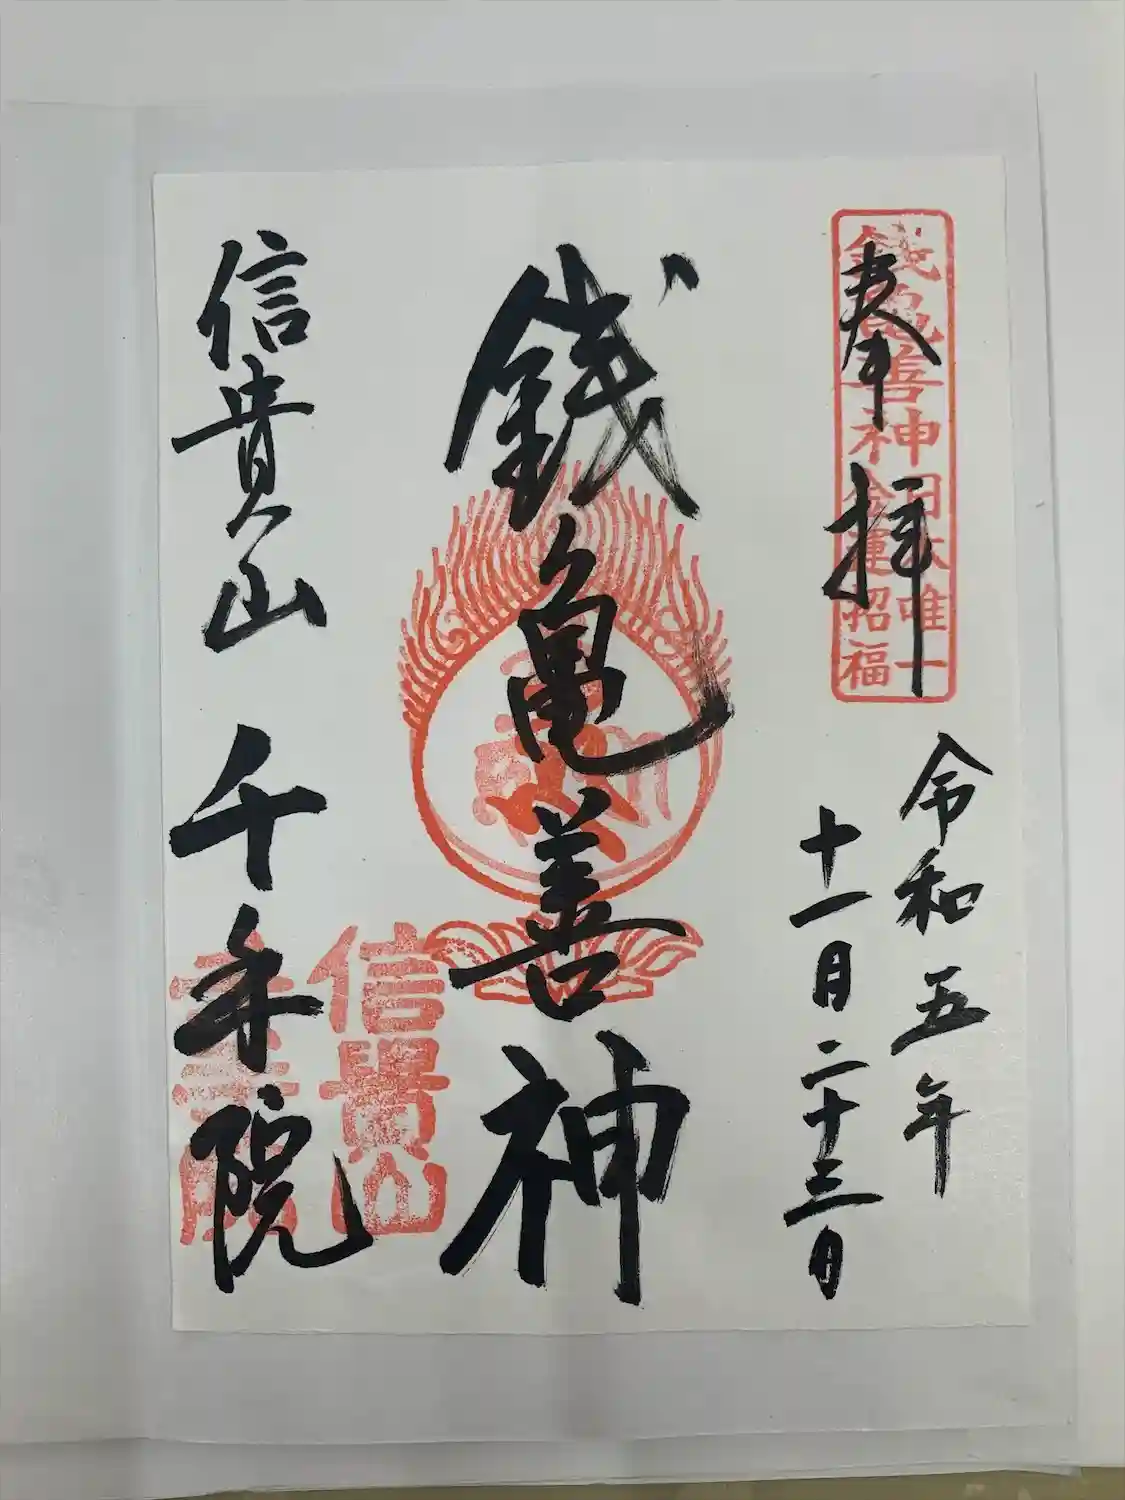 奉拝
銭亀善神
日本唯一
金運招福
令和五年
十一月二十三日
銭亀善神
信貴山 千手院
信貴山
千手院